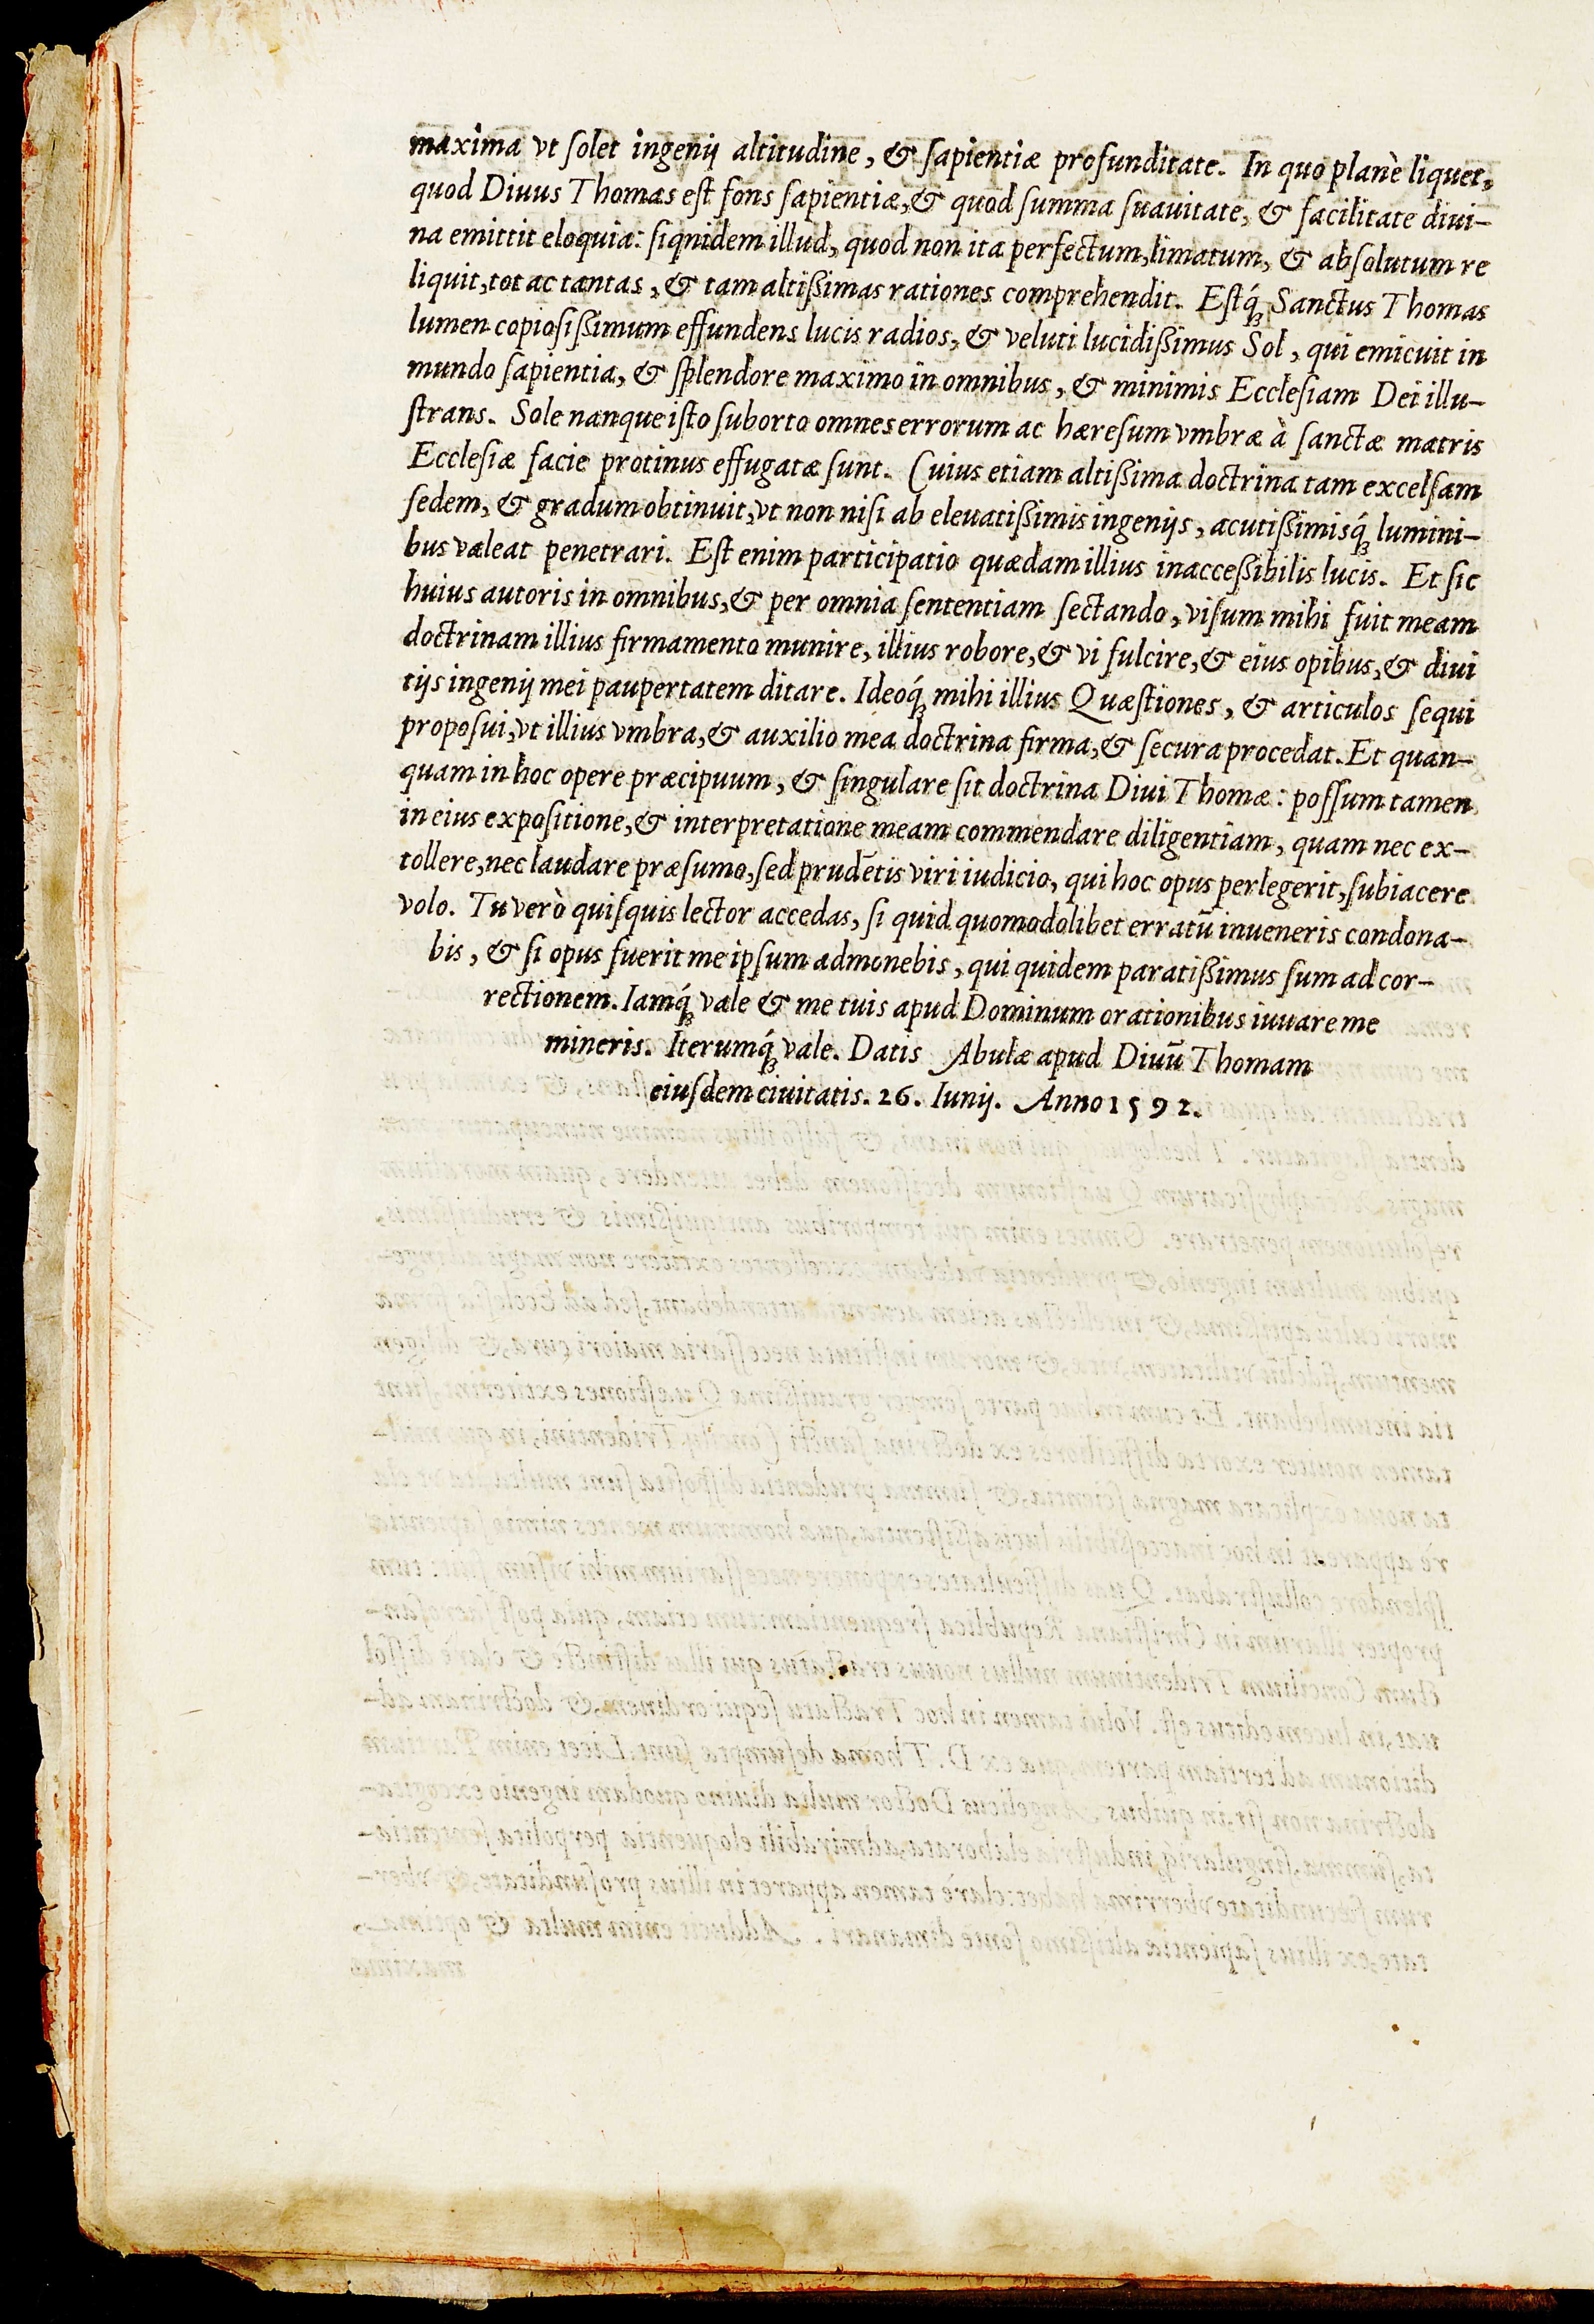 maxima vt ſolet ingenij altitudine, & ſapientiæ profunditate. In quo planè liquet,
quod Diuus Thomas eſt fons ſapientiæ, & quod ſumma ſuauitate, & facilitate diui-
na emittit eloquia: ſiqnidem illud, quod non ita perfectum, limatum, & abſolutum re
liquit, tot ac tantas, & tam altißimas rationes comprehendit. Eſtq́; Sanctus Thomas
lumen copioſißimum effundens lucis radios, & veluti lucidißimus Sol, qui emicuit in
mundo ſapientia, & ſplendore maximo in omnibus, & minimis Eccleſiam Dei illu-
ſtrans. Sole nanque iſto ſuborto omnes errorum ac hæreſum vmbræ à ſanctæ matris
Eccleſiæ facie protinus effugatæ ſunt. Cuius etiam altißima doctrina tam excelſam
ſedem, & gradum obtinuit, vt non niſi ab eleuatißimis ingenijs, acutißimisq́; lumini-
bus valeat penetrari. Eſt enim participatio quædam illius inacceßibilis lucis. Et ſic
huius autoris in omnibus, & per omnia ſententiam ſectando, viſum mihi fuit meam
doctrinam illius firmamento munire, illius robore, & vi fulcire, & eius opibus, & diui
tijs ingenij mei paupertatem ditare. Ideoq́; mihi illius Quæſtiones, & articulos ſequi
propoſui, vt illius vmbra, & auxilio mea doctrina firma, & ſecura procedat. Et quan-
quam in hoc opere præcipuum, & ſingulare ſit doctrina Diui Thomæ: poſſum tamen
in eius expoſitione, & interpretatione meam commendare diligentiam, quam nec ex-
tollere, nec laudare præſumo, ſed prudētis viri iudicio, qui hoc opus perlegerit, ſubiacere
volo. Tu verò quiſquis lector accedas, ſi quid quomodolibet erratū inueneris condona-
bis, & ſi opus fuerit me ipſum admonebis, qui quidem paratißimus ſum ad cor-
rectionem. Iamq́; vale & me tuis apud Dominum orationibus iuuare me
mineris. Iterumq́; vale. Datis Abulæ apud Diuū Thomam
eiuſdem ciuitatis. 26. Iunij. Anno 1592.